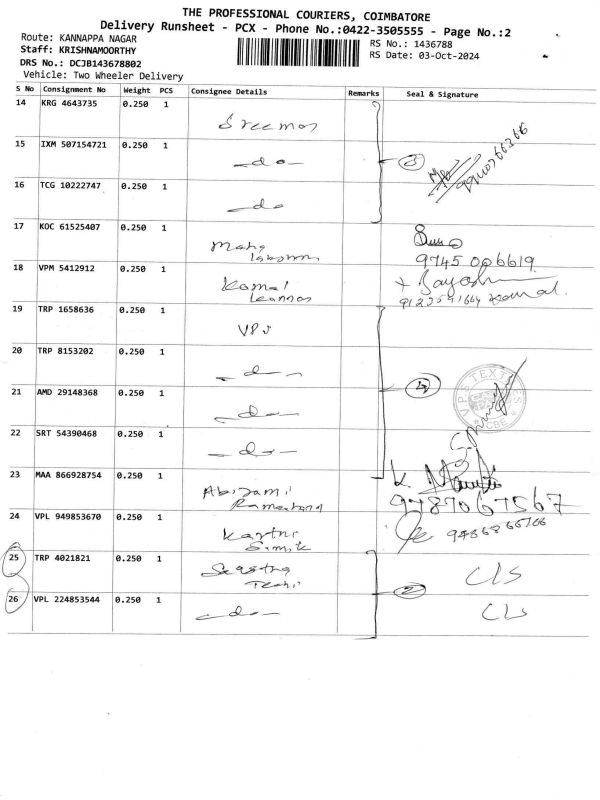 THE PROFESSIONAL COURIERS, COIMBATORE
Delivery Runsheet - PCX - Phone No.:0422-3505555 - Page No.:2
Route: KANNAPPA NAGAR
RS No.: 1436788
Staff: KRISHNAMOORTHY
RS Date: 03-Oct-2024
DRS No.: DCJB143678802
Vehicle: Two Wheeler Delivery
S No Consignment No Weight PCS Consignee Details Remarks Seal & Signature
14 KRG 4643735 0.250 1
15 IXM 507154721 0.250 1 -do-
16 TCG 10222747 0.250 1 -do
17 KOC 61525407 0.250 1
9745 006619
18 VPM 5412912 0.250 1 Kamal
19 TRP 1658636 0.250 1 VPS
20 TRP 8153202 0.250 1 -do-
4
VPS TEXTILES
CBE
21 AMD 29148368 0.250 1 -do-
22 SRT 54390468 0.250 1 -do-
23 MAA 866928754 0.250 1 Abirami
9787067567
24 VPL 949853670 0.250 1
25 TRP 4021821 0.250 1 CLS
2
26 VPL 224853544 0.250 1 -do- CLS